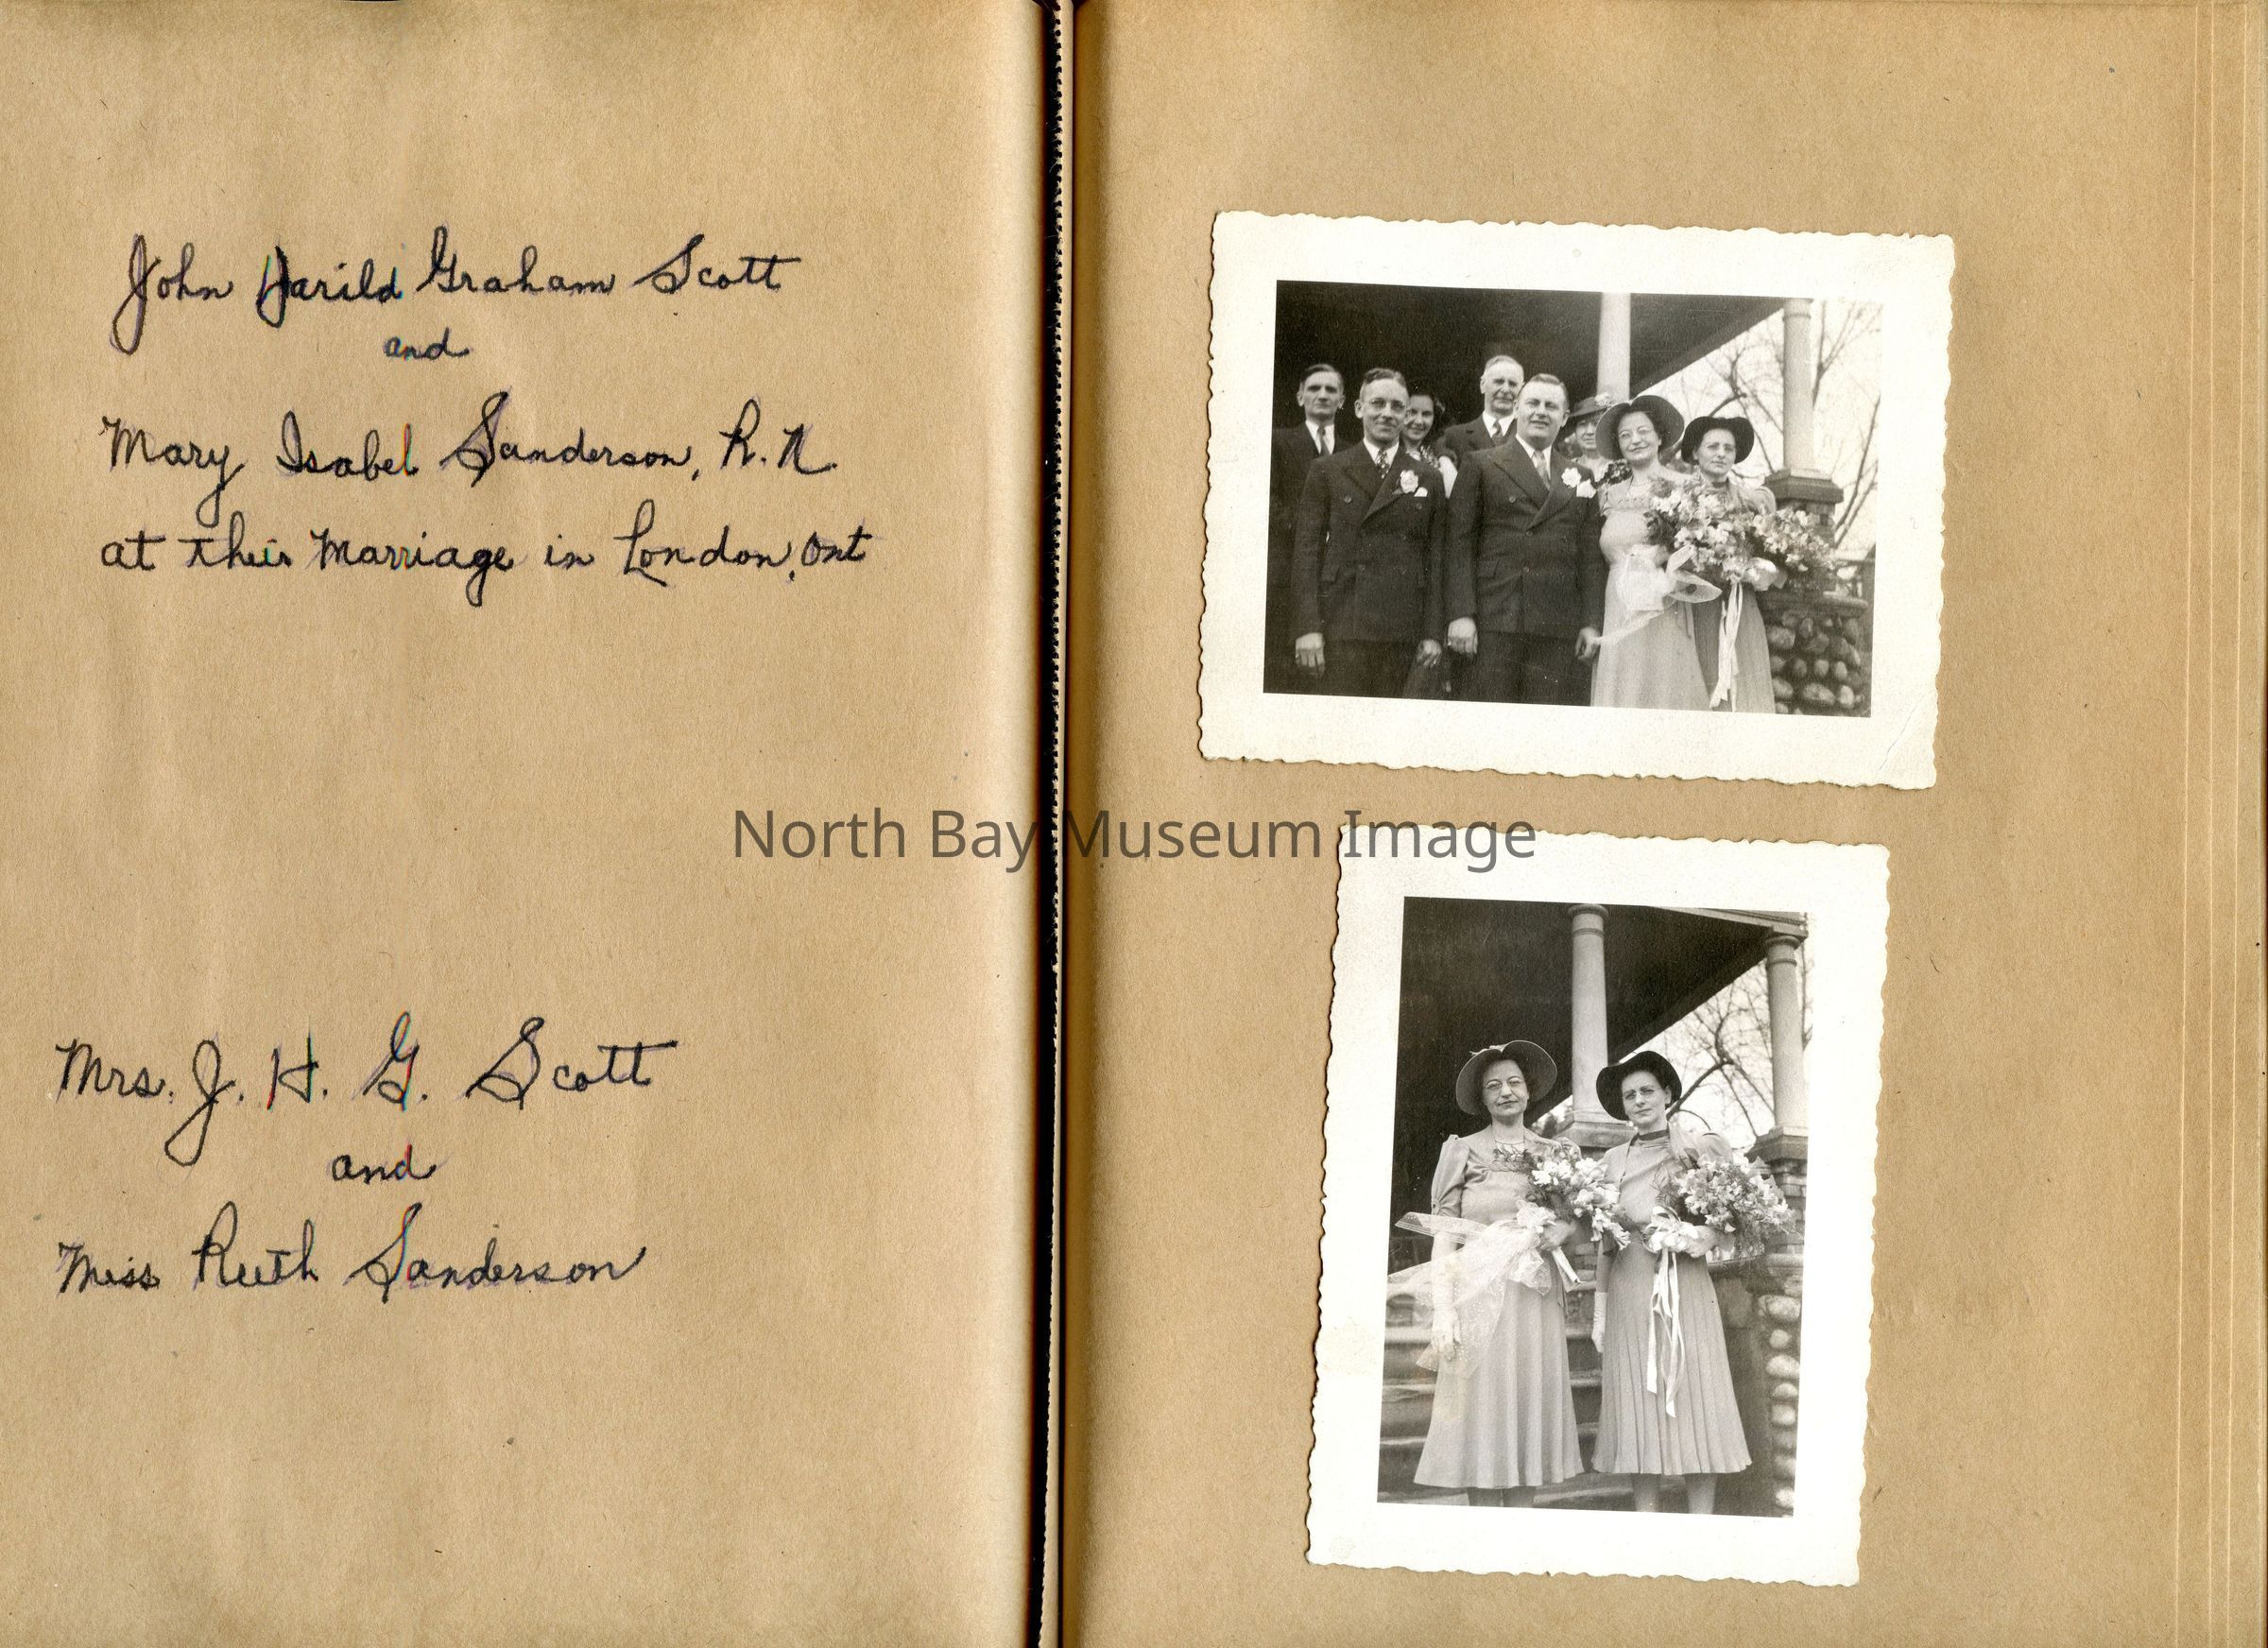 John Harild Graham Scott
and
Mary Isabel Sanderson, R.N.
at their Marriage in London, Ont
North Bay Museum Image
Mrs. J. H. G. Scott
and
Miss Ruth Sanderson